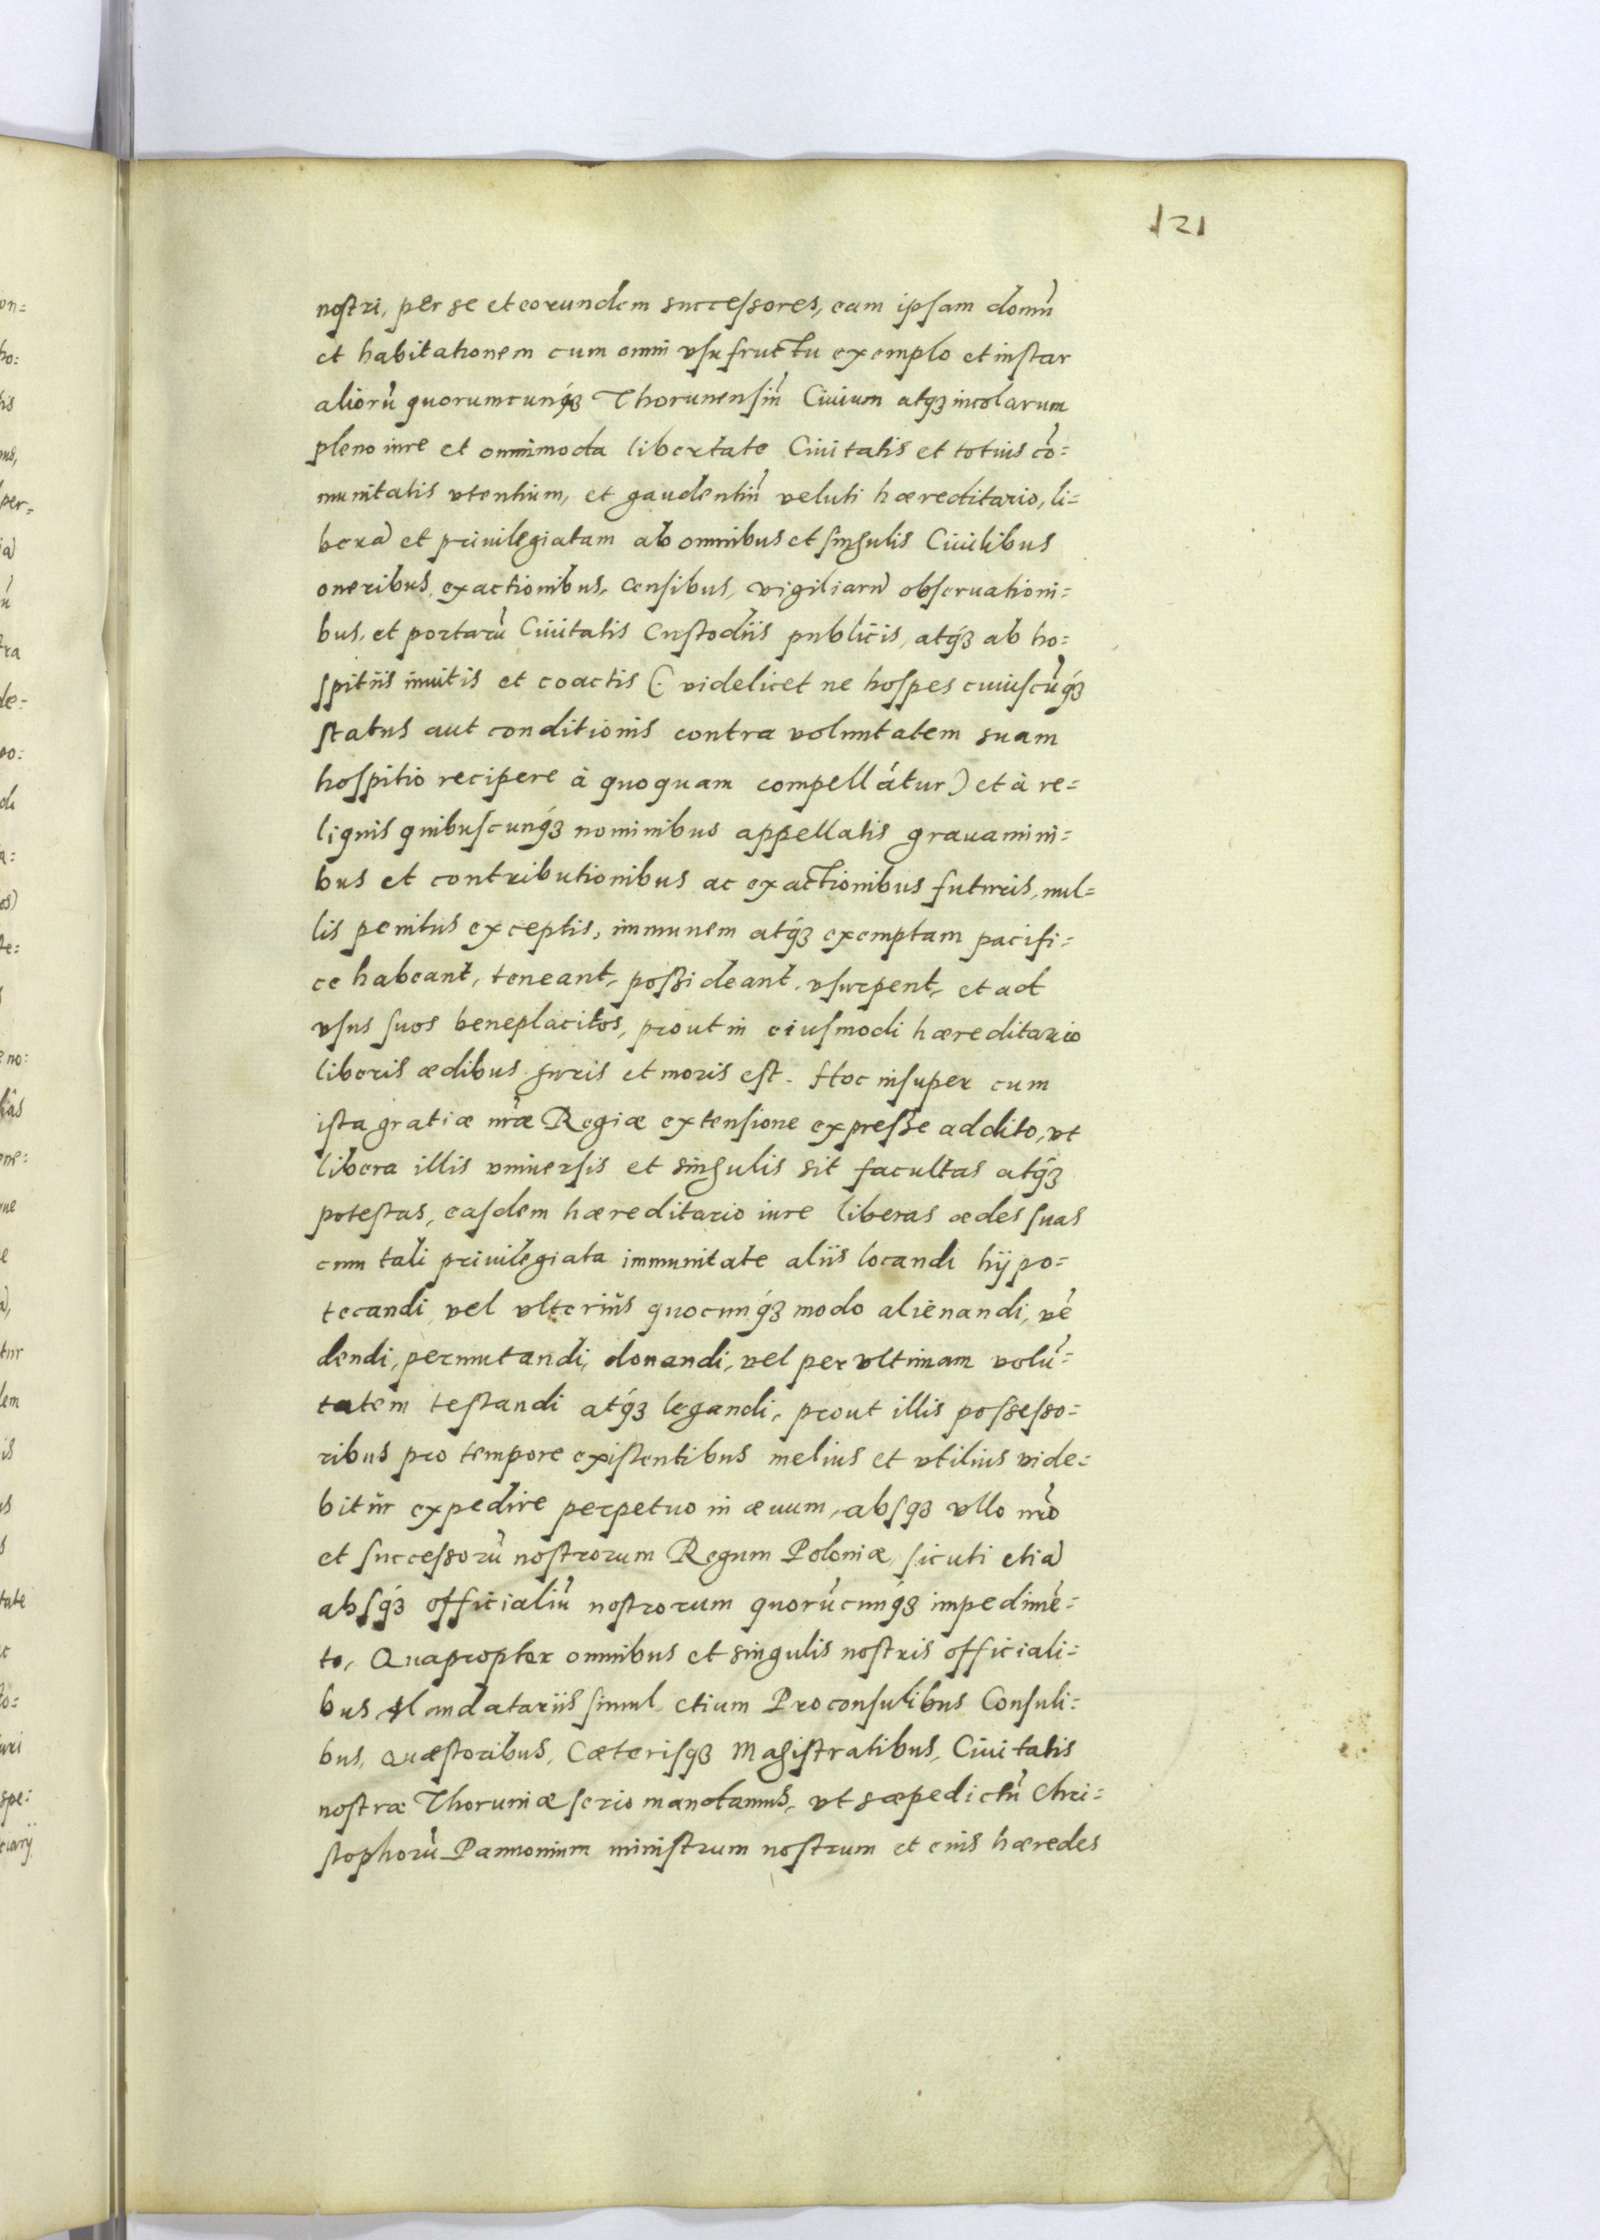 121
nostri, per se et eorundem successores, eam ipsam domū
et habitationem cum omni vsufructu exemplo et instar
aliorū quorumcunq₃ Thorunensiū Ciuium atq₃ incolarum
pleno iure et omnimoda libertate Ciuitatis et totius cō=
munitatis vtentium, et gaudentiū veluti hæreditario, li=
berā et priuilegiatam ab omnibus et singulis Ciuilibus
oneribus, exactionibus, censibus, vigiliarū obseruationi=
bus, et portarū Ciuitatis Custodiis publicis, atq₃ ab ho=
spitiis inuitis et coactis (: videlicet ne hospes cuiuscūq₃
status aut conditionis contra voluntatem suam
hospitio recipere à quoquam compellatur) et à re=
liquis quibuscunq₃ nominibus appellatis grauamini=
bus et contributionibus ac exactionibus futuris, nul=
lis penitus exceptis, immunem atq₃ exemptam pacifi=
ce habeant, teneant, possideant, vsurpent, et ad
vsus suos beneplacitos, prout in eiusmodi hæreditario
liberis ædibus juris et moris est. Hoc insuper cum
ista gratiæ nrāe Regiæ extensione expresse addito, vt
libera illis vniuersis et singulis sit facultas atq₃
potestas, easdem hæreditario iure liberas ædes suas
cum tali priuilegiata immunitate aliis locandi hypo=
tecandi, vel vlterius quocunq₃ modo alienandi, vē
dendi, permutandi, donandi, vel per vltimam volū=
tatem testandi atq₃ legandi, prout illis possesso=
ribus pro tempore existentibus melius et vtilius vide=
bitur expedire perpetuo in æuum, absq₃ vllo nrō
et successorū nostrorum Regum Poloniæ, sicuti etiā
absq₃ officialiū nostrorum quorūcunq₃ impedimē=
to, Quapropter omnibus et singulis nostris officiali=
bus Mandatariis simul etium Proconsulibus Consuli=
bus, Quæstoribus, Cæterisq₃ Magistratibus, Ciuitatis
nostræ Thoruniæ serio mandamus, vt sæpedictū Chri=
stophorū Pannonium ministrum nostrum et eius hæredes